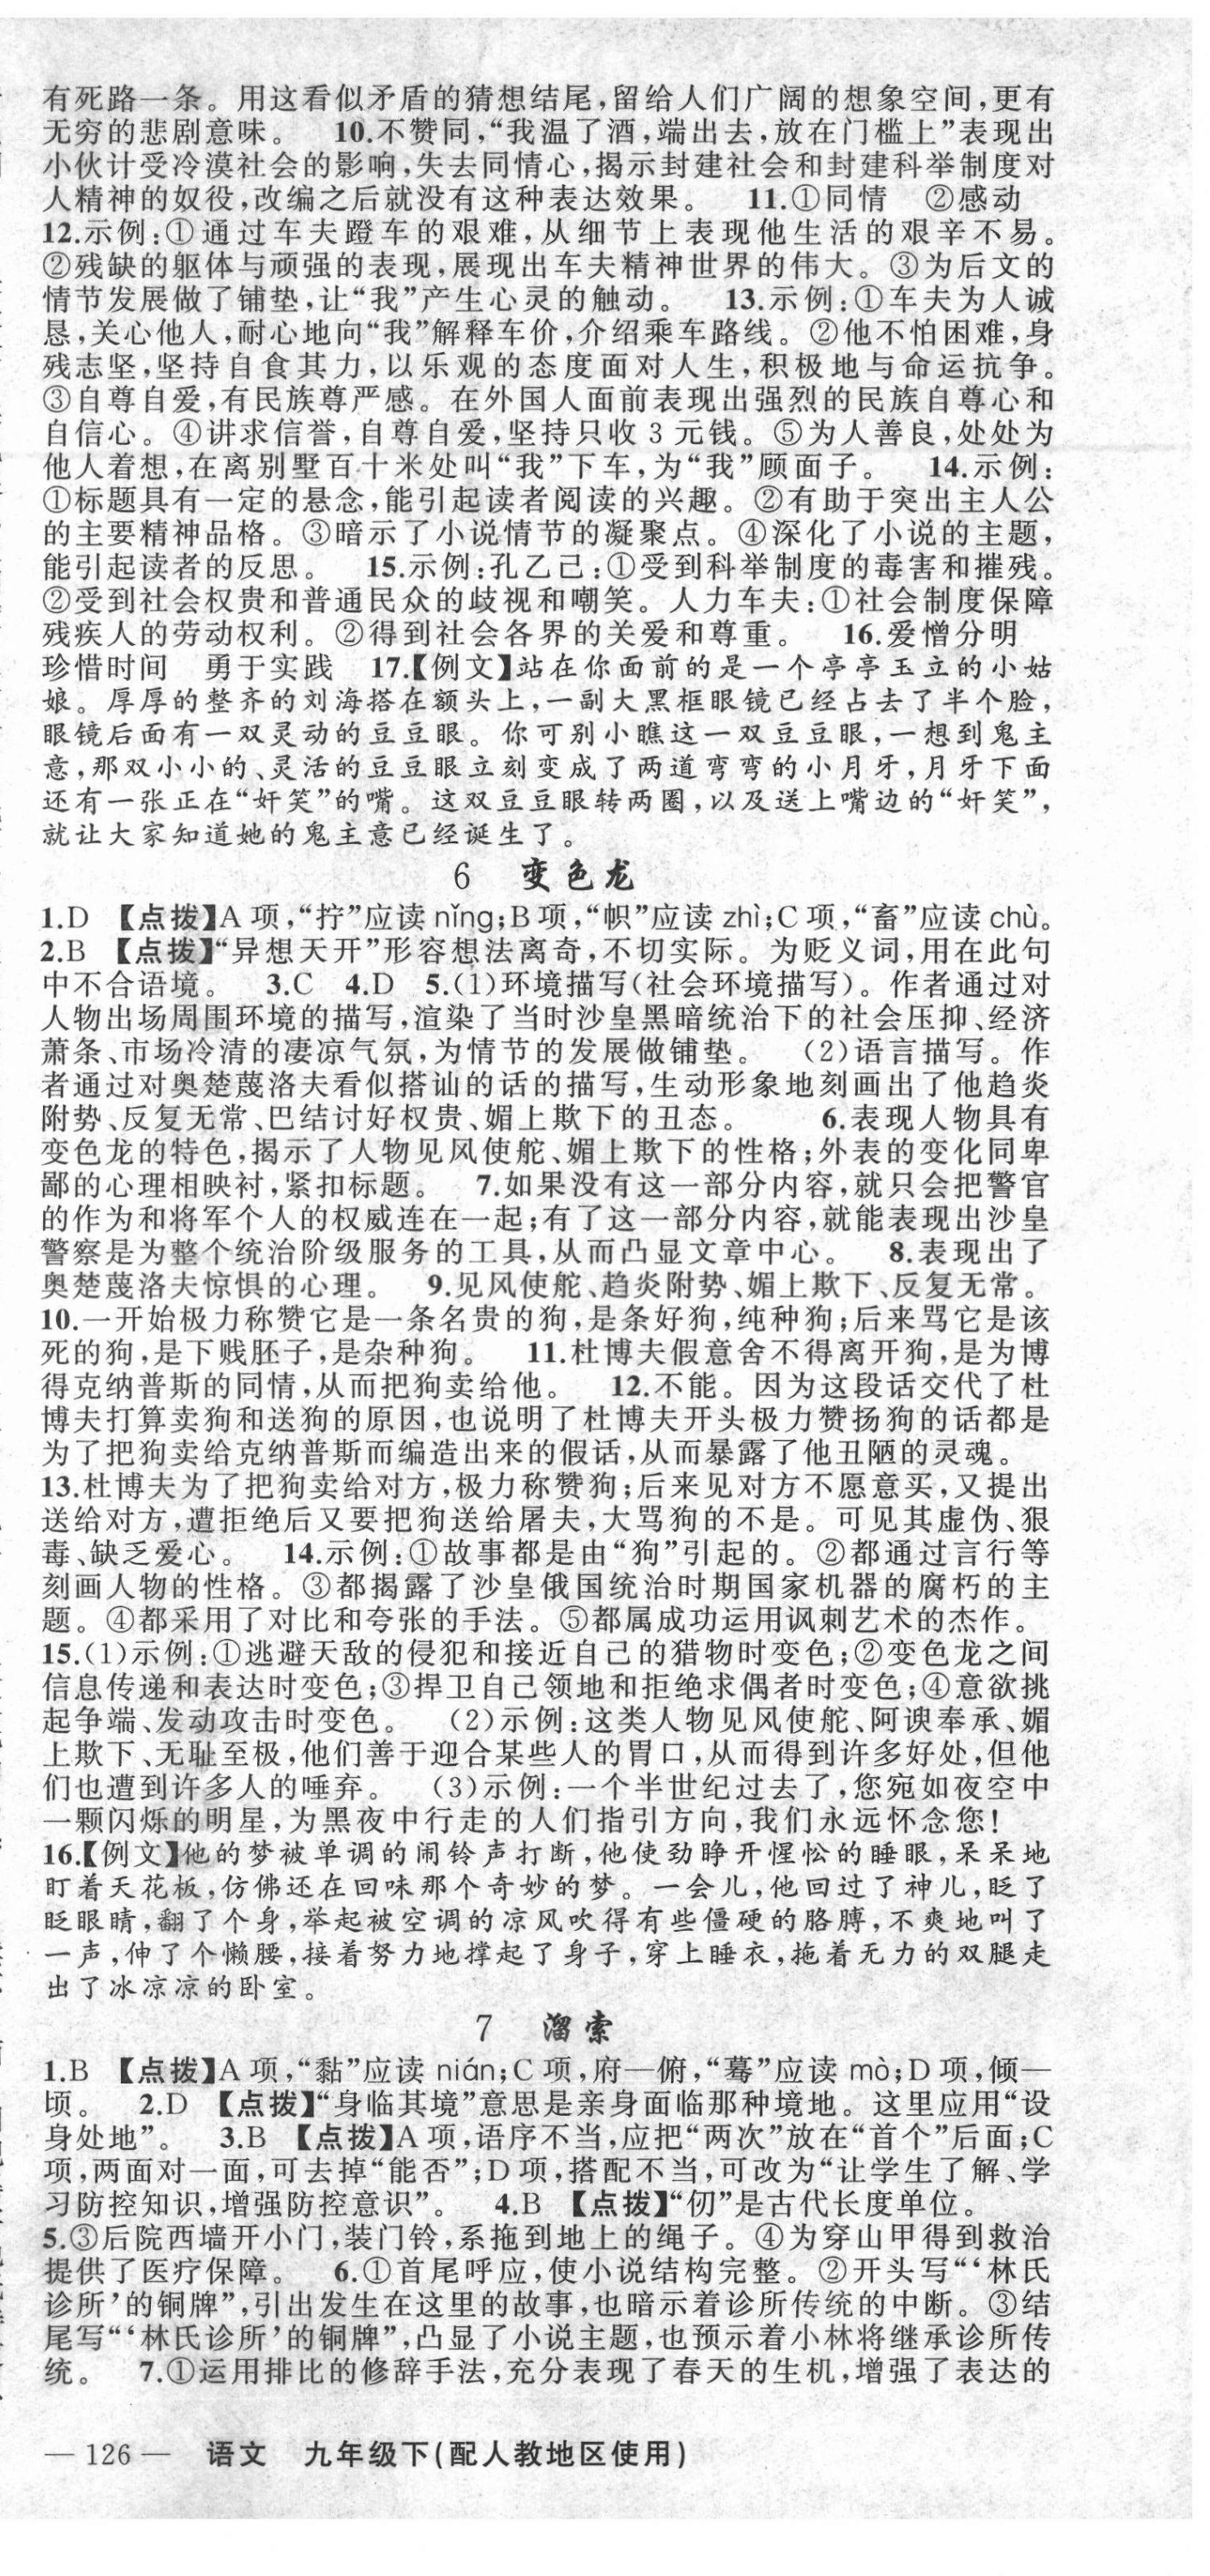 有死路一条。用这看似矛盾的猜想结尾,留给人们广阔的想象空间,更有
无穷的悲剧意味。 10.不赞同,“我温了酒,端出去,放在门槛上”表现出
小伙计受冷漠社会的影响,失去同情心,揭示封建社会和封建科举制度对
人精神的奴役,改编之后就没有这种表达效果。 11.①同情 ②感动
12.示例:①通过车夫蹬车的艰难,从细节上表现他生活的艰辛不易。
②残缺的躯体与顽强的表现,展现出车夫精神世界的伟大。③为后文的
情节发展做了铺垫,让“我”产生心灵的触动。 13.示例:①车夫为人诚
恳,关心他人,耐心地向“我”解释车价,介绍乘车路线。②他不怕困难,身
残志坚,坚持自食其力,以乐观的态度面对人生,积极地与命运抗争。
③自尊自爱,有民族尊严感。在外国人面前表现出强烈的民族自尊心和
自信心。④讲求信誉,自尊自爱,坚持只收 3 元钱。⑤为人善良,处处为
他人着想,在离别墅百十米处叫“我”下车,为“我”顾面子。 14.示例:
①标题具有一定的悬念,能引起读者阅读的兴趣。②有助于突出主人公
的主要精神品格。③暗示了小说情节的凝聚点。④深化了小说的主题,
能引起读者的反思。 15.示例:孔乙己:①受到科举制度的毒害和摧残。
②受到社会权贵和普通民众的歧视和嘲笑。人力车夫:①社会制度保障
残疾人的劳动权利。②得到社会各界的关爱和尊重。 16.爱憎分明
珍惜时间 勇于实践 17.【例文】站在你面前的是一个亭亭玉立的小姑
娘。厚厚的整齐的刘海搭在额头上,一副大黑框眼镜已经占去了半个脸,
眼镜后面有一双灵动的豆豆眼。你可别小瞧这一双豆豆眼,一想到鬼主
意,那双小小的、灵活的豆豆眼立刻变成了两道弯弯的小月牙,月牙下面
还有一张正在“奸笑”的嘴。这双豆豆眼转两圈,以及送上嘴边的“奸笑”,
就让大家知道她的鬼主意已经诞生了。
6 变色龙
1.D 【点拨】A 项,“拧”应读 nǐng;B 项,“帜”应读 zhì;C 项,“畜”应读 chù。
2.B 【点拨】“异想天开”形容想法离奇,不切实际。为贬义词,用在此句
中不合语境。 3.C 4.D 5.(1)环境描写(社会环境描写)。作者通过对
人物出场周围环境的描写,渲染了当时沙皇黑暗统治下的社会压抑、经济
萧条、市场冷清的凄凉气氛,为情节的发展做铺垫。 (2)语言描写。作
者通过对奥楚蔑洛夫看似搭讪的话的描写,生动形象地刻画出了他趋炎
附势、反复无常、巴结讨好权贵、媚上欺下的丑态。 6.表现人物具有
变色龙的特色,揭示了人物见风使舵、媚上欺下的性格;外表的变化同卑
鄙的心理相映衬,紧扣标题。 7.如果没有这一部分内容,就只会把警官
的作为和将军个人的权威连在一起;有了这一部分内容,就能表现出沙皇
警察是为整个统治阶级服务的工具,从而凸显文章中心。 8.表现出了
奥楚蔑洛夫惊惧的心理。 9.见风使舵、趋炎附势、媚上欺下、反复无常。
10.一开始极力称赞它是一条名贵的狗,是条好狗,纯种狗;后来骂它是该
死的狗,是下贱胚子,是杂种狗。 11.杜博夫假意舍不得离开狗,是为博
得克纳普斯的同情,从而把狗卖给他。 12.不能。因为这段话交代了杜
博夫打算卖狗和送狗的原因,也说明了杜博夫开头极力赞扬狗的话都是
为了把狗卖给克纳普斯而编造出来的假话,从而暴露了他丑陋的灵魂。
13.杜博夫为了把狗卖给对方,极力称赞狗;后来见对方不愿意买,又提出
送给对方,遭拒绝后又要把狗送给屠夫,大骂狗的不是。可见其虚伪、狠
毒、缺乏爱心。 14.示例:①故事都是由“狗”引起的。②都通过言行等
刻画人物的性格。③都揭露了沙皇俄国统治时期国家机器的腐朽的主
题。④都采用了对比和夸张的手法。⑤都属成功运用讽刺艺术的杰作。
15.(1)示例:①逃避天敌的侵犯和接近自己的猎物时变色;②变色龙之间
信息传递和表达时变色;③捍卫自己领地和拒绝求偶者时变色;④意欲挑
起争端、发动攻击时变色。 (2)示例:这类人物见风使舵、阿谀奉承、媚
上欺下、无耻至极,他们善于迎合某些人的胃口,从而得到许多好处,但他
们也遭到许多人的唾弃。 (3)示例:一个半世纪过去了,您宛如夜空中
一颗闪烁的明星,为黑夜中行走的人们指引方向,我们永远怀念您!
16.【例文】他的梦被单调的闹铃声打断,他使劲睁开惺忪的睡眼,呆呆地
盯着天花板,仿佛还在回味那个奇妙的梦。一会儿,他回过了神儿,眨了
眨眼睛,翻了个身,举起被空调的凉风吹得有些僵硬的胳膊,不爽地叫了
一声,伸了个懒腰,接着努力地撑起了身子,穿上睡衣,拖着无力的双腿走
出了冰凉凉的卧室。
7 溜索
1.B 【点拨】A 项,“黏”应读 nián;C 项,府—俯,“蓦”应读 mò;D 项,倾—
顷。 2.D 【点拨】“身临其境”意思是亲身面临那种境地。这里应用“设
身处地”。 3.B 【点拨】A 项,语序不当,应把“两次”放在“首个”后面;C
项,两面对一面,可去掉“能否”;D 项,搭配不当,可改为“让学生了解、学
习防控知识,增强防控意识”。 4.B 【点拨】“仞”是古代长度单位。
5.③后院西墙开小门,装门铃,系拖到地上的绳子。④为穿山甲得到救治
提供了医疗保障。 6.①首尾呼应,使小说结构完整。②开头写“‘林氏
诊所’的铜牌”,引出发生在这里的故事,也暗示着诊所传统的中断。③结
尾写“‘林氏诊所’的铜牌”,凸显了小说主题,也预示着小林将继承诊所传
统。 7.①运用排比的修辞手法,充分表现了春天的生机,增强了表达的
— 126 — 语文 九年级下(配人教地区使用)